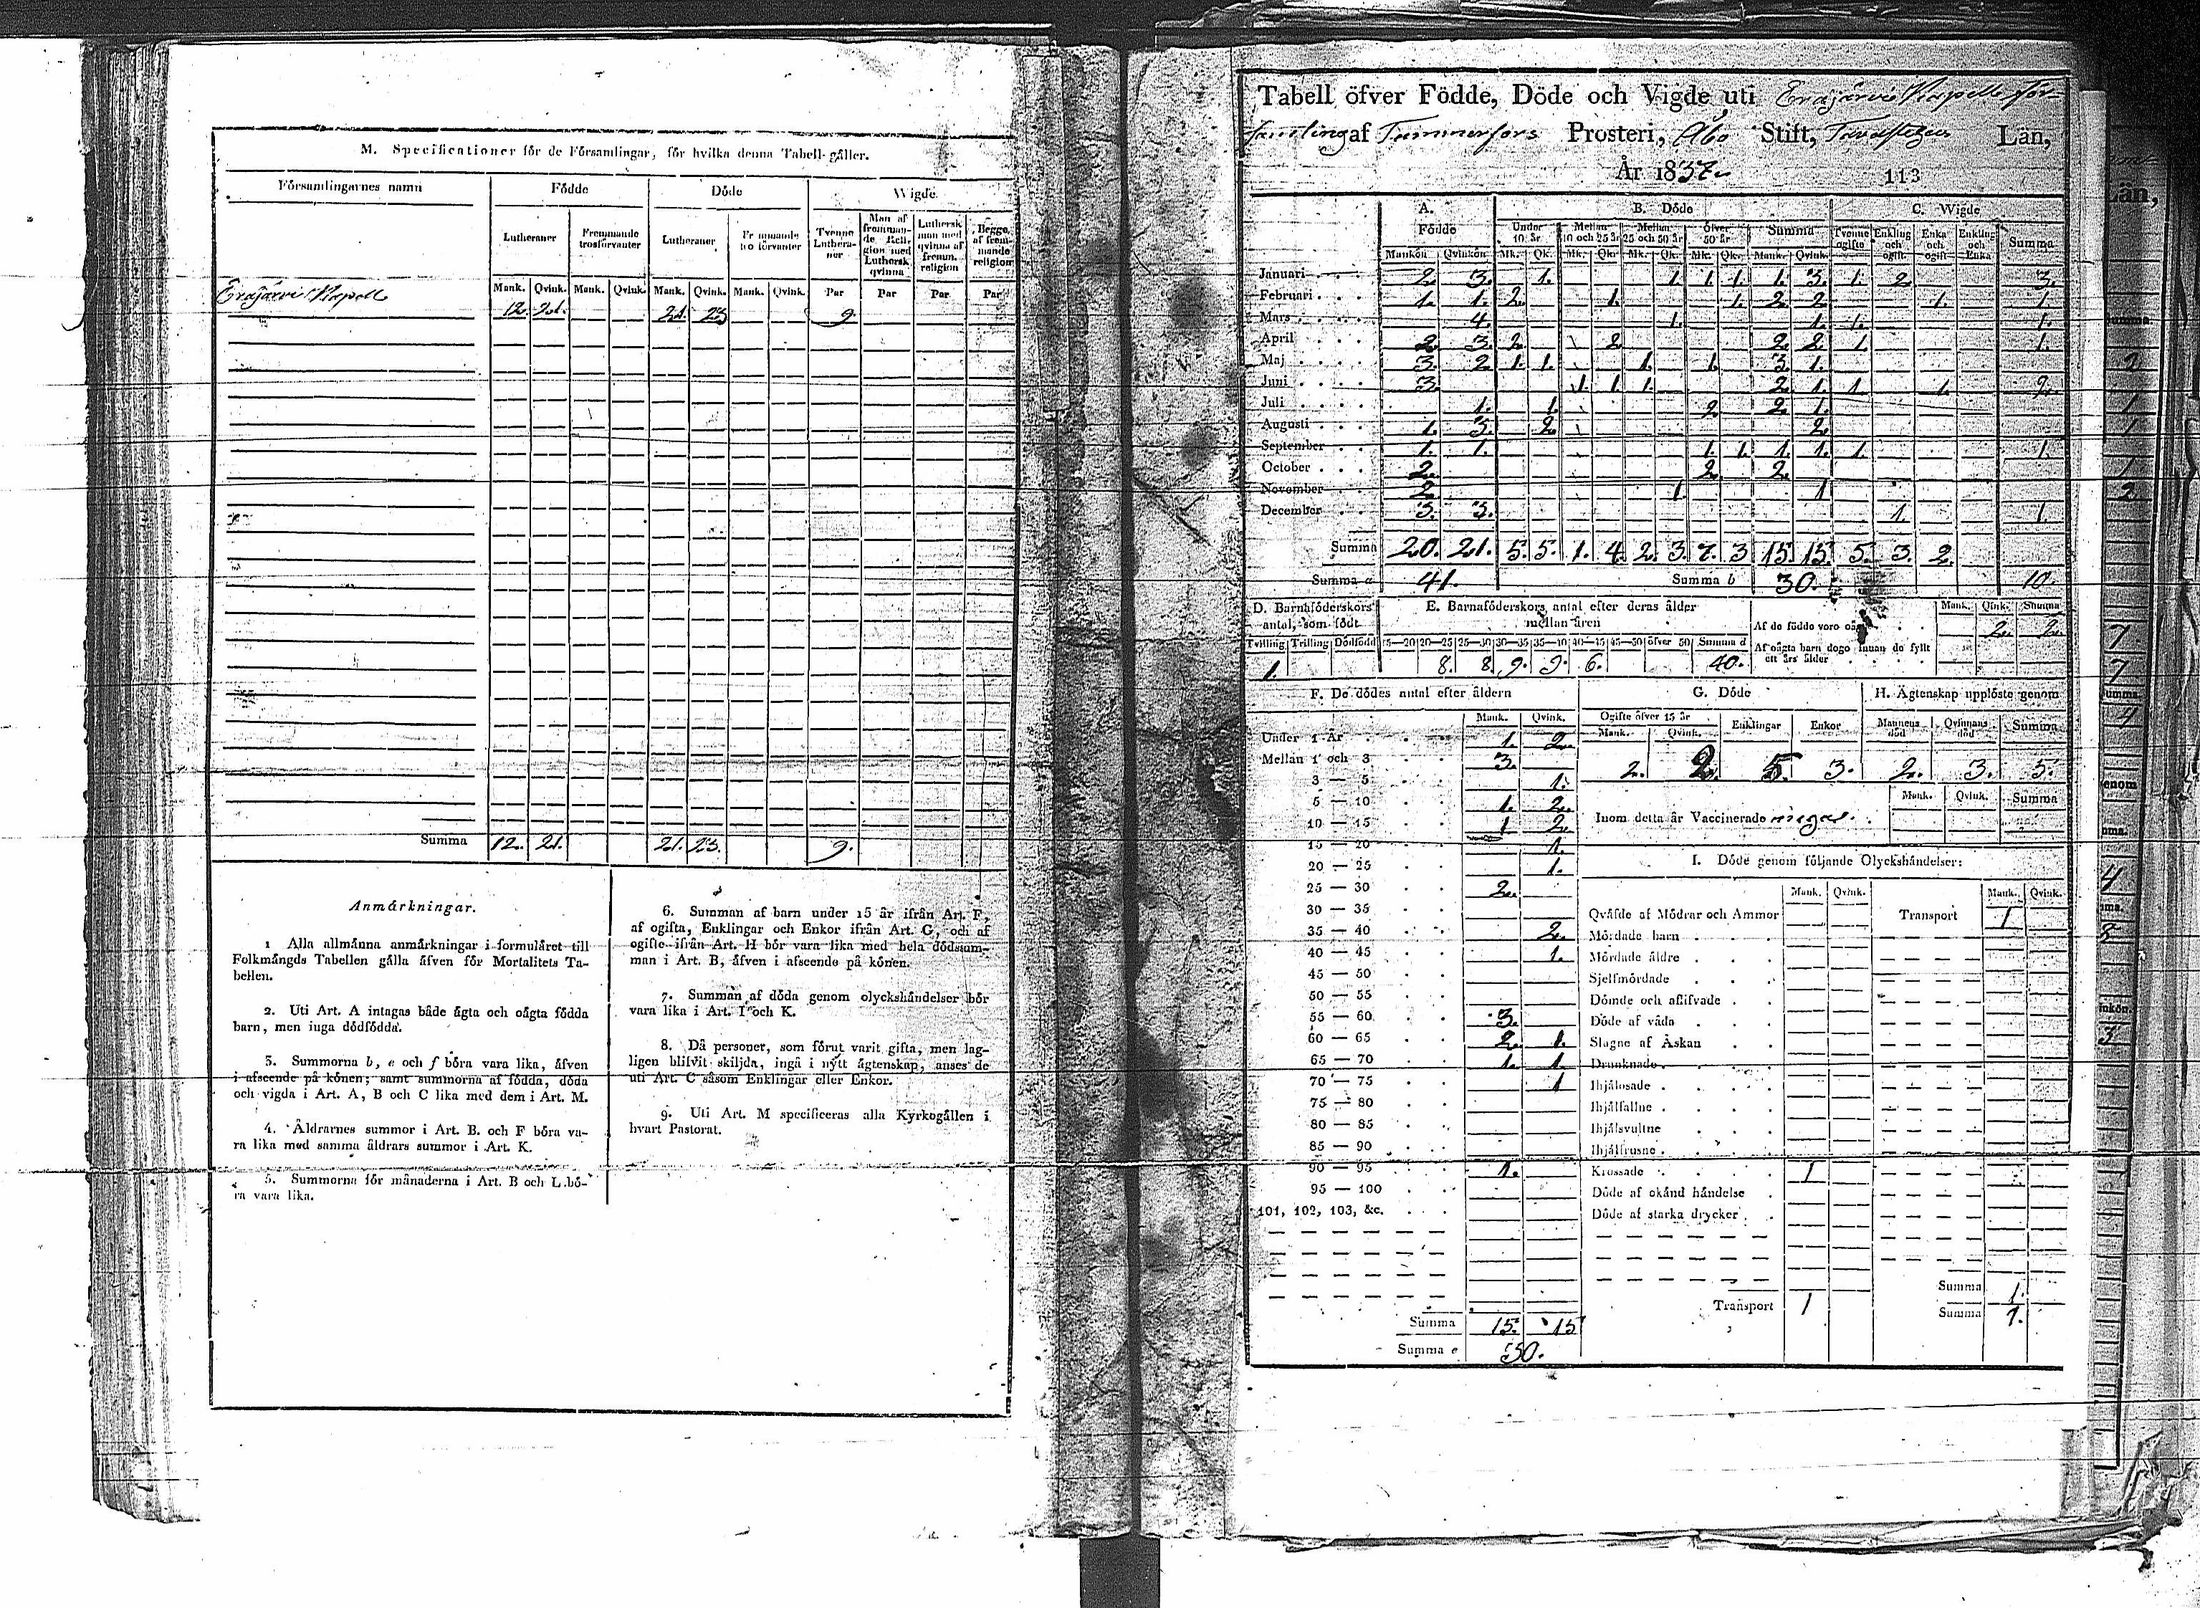 M. Specificationer för de Församlingar, för hvilka denna Tabell gäller.
Församlingarnes namn Födde Döde Wigde
Lutheraner Fremmande trosförvanter Lutheraner Fremmande trosförvanter Tvenne Lutheraner Man af fremmande Religion med Luthersk qvinna Luthersk man med qvinna af fremm. religion Begge af fremmande religion
Mank. Qvink. Mank. Qvink. Mank. Qvink. Mank. Qvink. Par Par Par Par
Eräjärvi Kapell 12. 21. 21. 23 9.
Summa 12. 21. 21. 23. 9.
Anmärkningar.
1 Alla allmänna anmärkningar i formuläret till
Folkmängds Tabellen gälla äfven för Mortalitets Ta-
bellen.
2. Uti Art. A intagas både ägta och oägta födda
barn, men inga dödfödda.
3. Summorna b, e och f böra vara lika, äfven
i afseende på könen; samt summorna af födda, döda
och vigda i Art. A, B och C lika med dem i Art. M.
4. Åldrarnes summor i Art. B. och F böra va-
ra lika med samma åldrars summor i Art. K.
5. Summorna för månaderna i Art. B och L bö-
ra vara lika.
6. Summan af barn under 15 år ifrån Art. F,
af ogifta, Enklingar och Enkor ifrån Art. G, och af
ogifte ifrån Art. H bör vara lika med hela dödssum-
man i Art. B, äfven i afseende på könen.
7. Summan af döda genom olyckshändelser bör
vara lika i Art. I och K.
8. Då personer, som förut varit gifta, men lag-
ligen blifvit skiljda, ingå i nytt ägtenskap, anses de
uti Art. C såsom Enklingar eller Enkor.
9. Uti Art. M specificeras alla Kyrkogällen i
hvart Pastorat.
Tabell öfver Födde, Döde och Vigde uti Eräjärvi Kapells för-
samling af Tammerfors Prosteri, Åbo Stift, Tavastehus Län,
År 1837. 113
A. Födde B. Döde C. Wigde
Under 10 år Mellan 10 och 25 år Mellan 25 och 50 år öfver 50 år Summa Tvenne ogifte Enkling och ogift Enka och ogift Enkling och Enka Summa
Mankön Qvinkön Mk. Qk. Mk. Qk. Mk. Qk. Mk. Qk. Mank. Qvink.
Januari 2. 3. 1. 1 1. 1. 1. 3. 1. 2. 3.
Februari 1. 1. 2. 1. 1. 2. 2. 1. 1.
Mars 4. 1. 1. 1. 1.
April 2. 3. 2. 2. 2. 2. 1. 1.
Maj 3. 2 1. 1. 1. 1. 3. 1.
Juni 3. 1. 1. 1. 2. 1. 1 1. 2.
Juli 1. 1. 2. 2. 1.
Augusti 1. 3. 2. 2.
September 1. 1. 1. 1. 1. 1. 1. 1.
October 2. 2. 2.
November 2 1. 1
December 3. 3. 1. 1.
Summa 20. 21. 5. 5. 1. 4. 2. 3. 7. 3 15. 15. 5. 3. 2.
Summa a 41. Summa b 30. 10.
D. Barnaföderskors antal, som födt E. Barnaföderskors antal efter deras ålder mellan åren
Mank. Qink. Summa
Tvilling Trilling Dödfödd 15—20 20—25 25—30 30—35 35—40 40—45 45—50 öfver 50 Summa d
1. 8. 8. 9. 9. 6. 40.
Af de födde voro oägta 2. 2.
Af oägta barn dogo innan de fyllt
ett års ålder
F. De dödes antal efter åldern
Mank. Qvink.
Under 1 År 1. 2.
Mellan 1 och 3 3.
3 — 5 1.
5 — 10 1. 2.
10 — 15 1 2.
15 — 20 1.
20 — 25 1.
25 — 30 2.
30 — 35
35 — 40 2.
40 — 45 1.
45 — 50
50 — 55
55 — 60 3.
60 — 65 2. 1.
65 — 70 1. 1.
70 — 75 1
75 — 80
80 — 85
85 — 90
90 — 95 1.
95 — 100
101, 102, 103, &c.
Summa 15. 15
Summa e 30.
G. Döde H. Ägtenskap upplöste genom
Ogifte öfver 15 år Enklingar Enkor Mannens död Qvinnans död Summa
Mank. Qvink.
2. 2. 5. 3. 2. 3. 5.
Mank. Qvink. Summa
Inom detta år Vaccinerade
I. Döde genom följande Olyckshändelser:
Mank. Qvink. Mank. Qvink.
Qväfde af Mödrar och Ammor Transport 1
Mördade barn
Mördade äldre
Sjelfmördade
Dömde och aflifvade
Döde af våda
Slagne af Åskan
Drunknade
Ihjälosade
Ihjälfallne
Ihjälsvultne
Ihjälfrusne
Krossade 1
Döde af okänd händelse
Döde af starka drycker
Summa 1.
Transport 1 Summa 1.